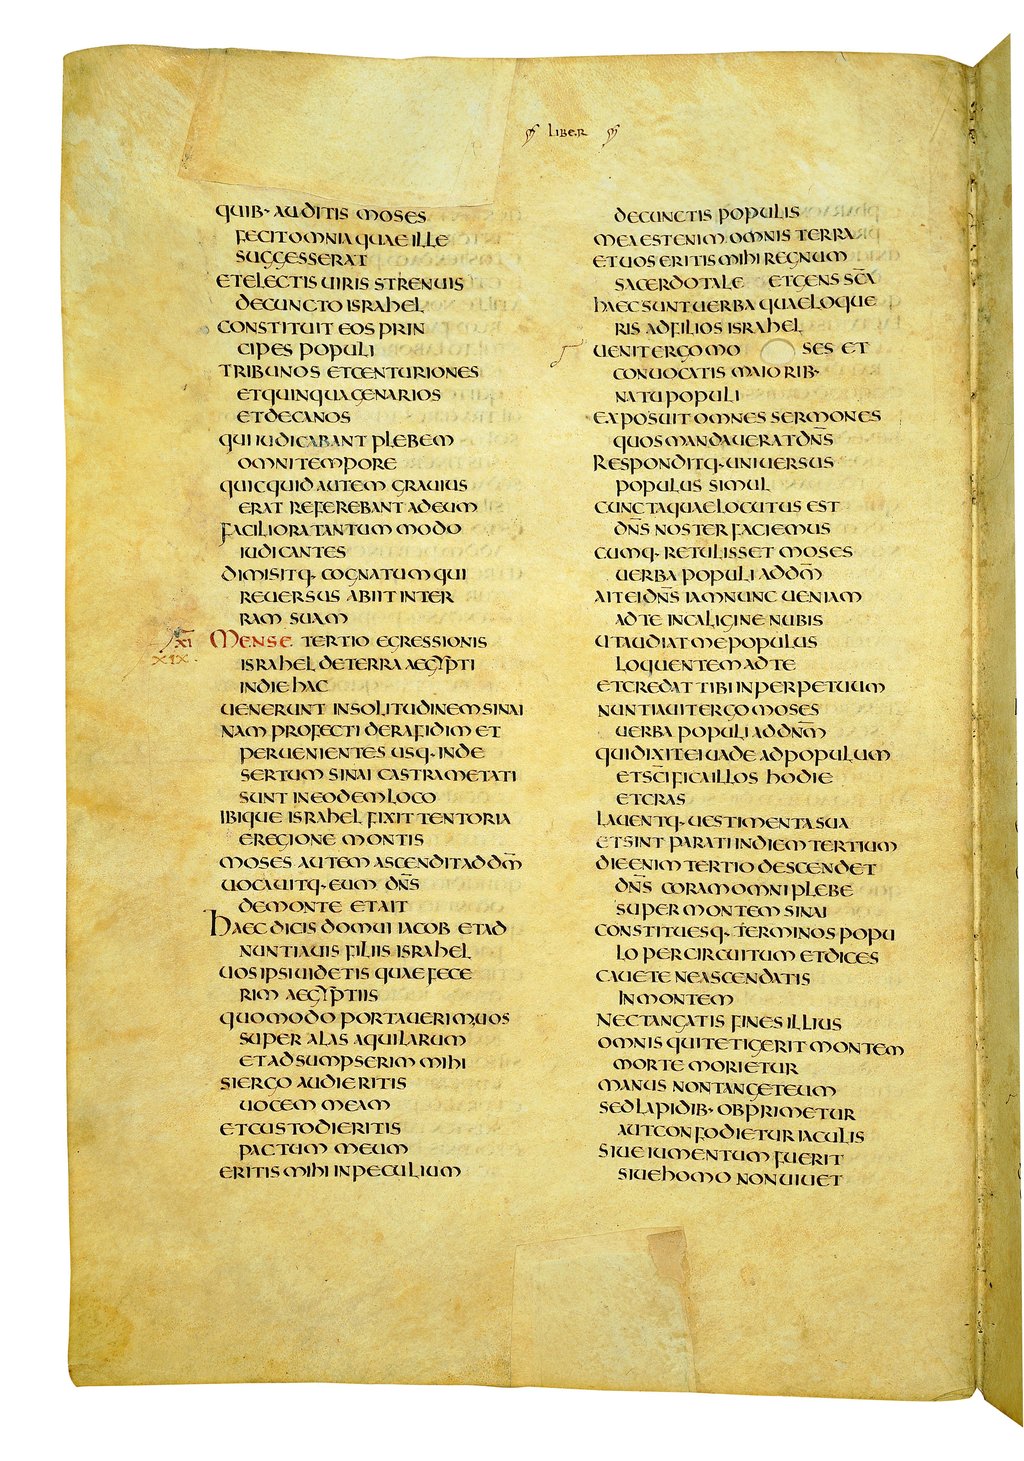 LIBER
QUIB· AUDITIS MOSES
FECIT OMNIA QUAE ILLE
SUGGESSERAT
ET ELECTIS UIRIS STRENUIS
DE CUNCTO ISRAHEL
CONSTITUIT EOS PRIN
CIPES POPULI
TRIBUNOS ET CENTURIONES
ET QUINQUAGENARIOS
ET DECANOS
QUI IUDICABANT PLEBEM
OMNI TEMPORE
QUICQUID AUTEM GRAUIUS
ERAT REFEREBANT AD EUM
FACILIORA TANTUM MODO
IUDICANTES
DIMISITQ· COGNATUM QUI
REUERSUS ABIIT IN TER
RAM SUAM
XI MENSE TERTIO EGRESSIONIS
XIX· ISRAHEL DE TERRA AEGYPTI
IN DIE HAC
UENERUNT IN SOLITUDINEM SINAI
NAM PROFECTI DE RAFIDIM ET
PERUENIENTES USQ· IN DE
SERTUM SINAI CASTRAMETATI
SUNT IN EODEM LOCO
IBIQUE ISRAHEL FIXIT TENTORIA
E REGIONE MONTIS
MOSES AUTEM ASCENDIT AD DM̄
UOCAUITQ· EUM DN̄S
DE MONTE ET AIT
HAEC DICIS DOMUI IACOB ET AD
NUNTIAUIS FILIIS ISRAHEL
UOS IPSI UIDETIS QUAE FECE
RIM AEGYPTIIS
QUOMODO PORTAUERIM UOS
SUPER ALAS AQUILARUM
ET ADSUMPSERIM MIHI
SI ERGO AUDIERITIS
UOCEM MEAM
ET CUSTODIERITIS
PACTUM MEUM
ERITIS MIHI IN PECULIUM
DE CUNCTIS POPULIS
MEA EST ENIM OMNIS TERRA
ET UOS ERITIS MIHI REGNUM
SACERDOTALE ET GENS SC̄A
HAEC SUNT UERBA QUAE LOQUE
RIS AD FILIOS ISRAHEL
UENIT ERGO MO SES ET
CONUOCATIS MAIORIB·
NATU POPULI
EXPOSUIT OMNES SERMONES
QUOS MANDAUERAT DN̄S
RESPONDITQ· UNIUERSUS
POPULUS SIMUL
CUNCTA QUAE LOCUTUS EST
DN̄S NOSTER FACIEMUS
CUMQ· RETULISSET MOSES
UERBA POPULI AD DM̄
AIT EI DN̄S IAM NUNC UENIAM
AD TE IN CALIGINE NUBIS
UT AUDIAT ME POPULUS
LOQUENTEM AD TE
ET CREDAT TIBI IN PERPETUUM
NUNTIAUIT ERGO MOSES
UERBA POPULI AD DNM̄
QUI DIXIT EI UADE AD POPULUM
ET SC̄IFICA ILLOS HODIE
ET CRAS
LAUENTQ· UESTIMENTA SUA
ET SINT PARATI IN DIEM TERTIUM
DIE ENIM TERTIO DESCENDET
DN̄S CORAM OMNI PLEBE
SUPER MONTEM SINAI
CONSTITUESQ· TERMINOS POPU
LO PER CIRCUITUM ET DICES
CAUETE NE ASCENDATIS
IN MONTEM
NEC TANGATIS FINES ILLIUS
OMNIS QUI TETIGERIT MONTEM
MORTE MORIETUR
MANUS NON TANGET EUM
SED LAPIDIB· OBPRIMETUR
AUT CONFODIETUR IACULIS
SIUE IUMENTUM FUERIT
SIUE HOMO NON UIUET